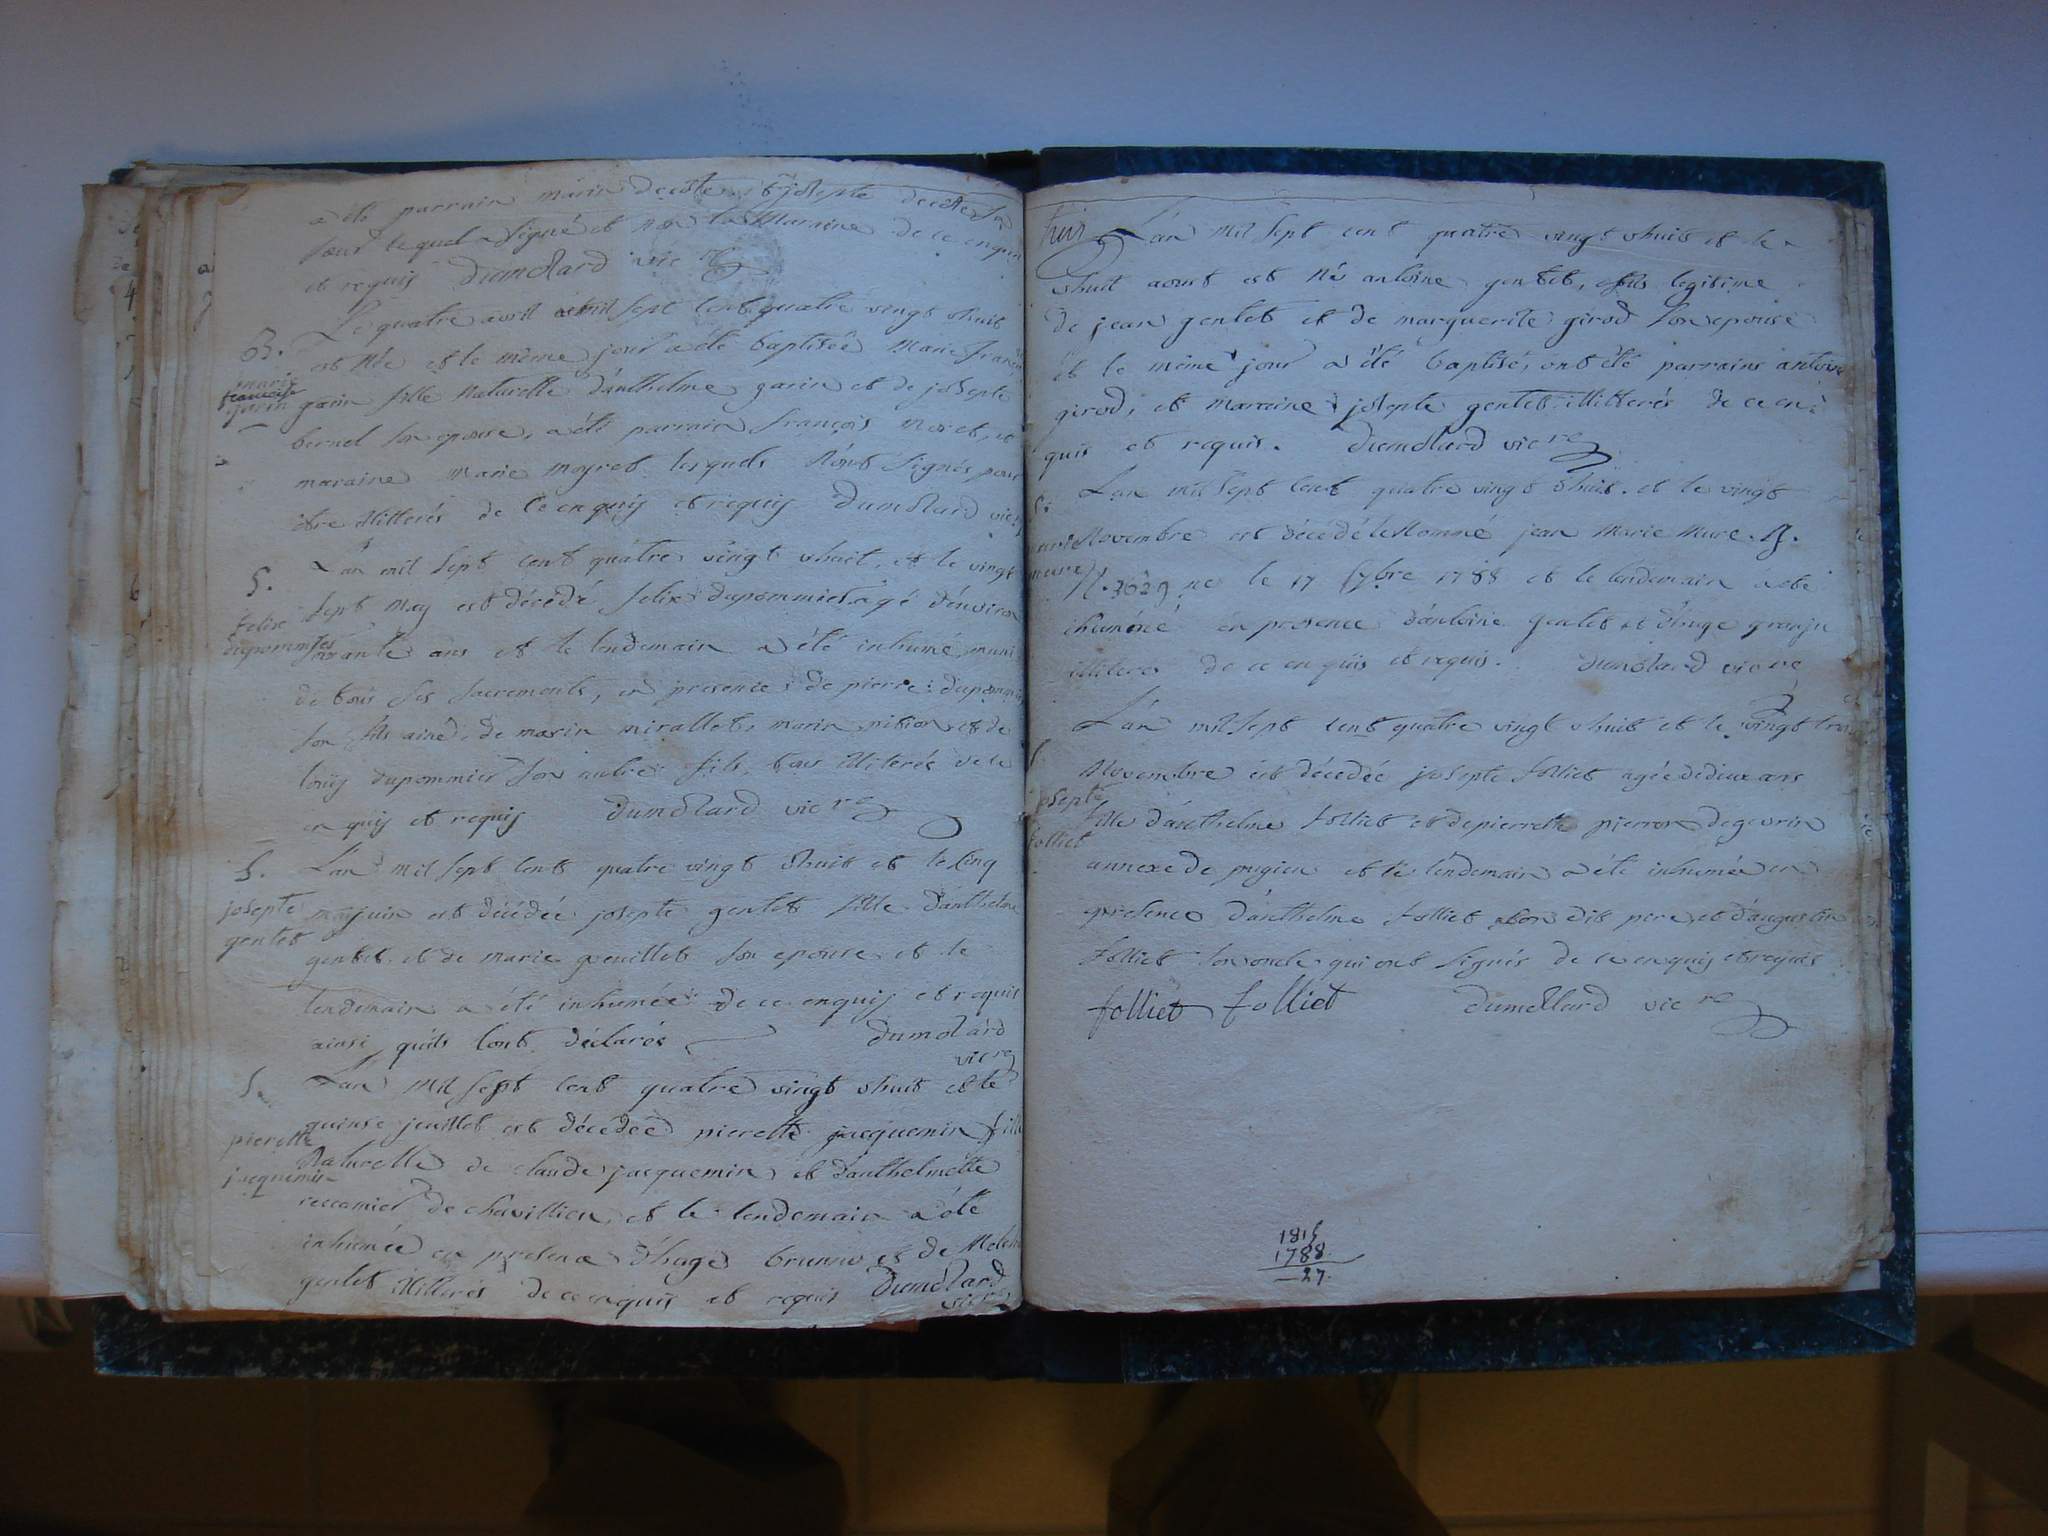 a été parrain marin decôte et josepte decôte sa
sœur lequel a signé et non la Maraine de ce enquis
et requis Dumolard vic re
B. Le quatre avril mil sept cent quatre vingt huit
est née et le même jour a été baptisée Marie françoise
marie françoise garin
garin fille naturelle d'anthelme garin et de josepte
bernel son epouse, a été parrain françois Moret, et
maraine Marie moyret lesquels n'ont signés pour
être illiterés de ce enquis et requis Dumolard vic re
S. L'an mil sept cent quatre vingt huit, et le vingt
felix dupommier
sept may est décédé felix dupommier agé d'environ
soixante ans et le lendemain a été inhumé, muni
de tous ses sacrements, en presence de pierre dupommier
son fils ainé, de marin mirallet, marin pition et de
louis dupommier son autre fils, tous illiterés de ce
enquis et requis Dumolard vic re
S. L'an mil sept cent quatre vingt huit et le cinq
josepte gentet
juin est décédée josepte gentet fille d'anthelme
gentet et de marie genillet son epouse et le
lendemain a été inhumée de ce enquis et requis
ainsi qu'ils l'ont déclarés Dumolard
vic re
S. L'an mil sept cent quatre vingt huit et le
quinse jeuillet est décédée pierette jacquemin fille
pierette jacquemin
Naturelle de claude jacquemin et d'anthelmette
reccamier de chavillieu et le lendemain a été
inhumée en presence d'huge brunno et de
gentet illiterés de ce enquis et requis Dumolard
vic re
L'an mil sept cent quatre vingt huit et le
huit aoust est né antoine gentet, fils legitime
de jean gentet et de marguerite girod son epouse
et le même jour a été baptisé, ont été parrains antoine
girod, et maraine josepte gentet illitterés de ce en
quis et requis. Dumolard vic re
S. L'an mil sept cent quatre vingt huit. et le vingt
Novembre est décédé le Nommé jean Marie Mure. B.
mure
N. 3629 ne le 17 7bre 1788 et le lendemain a été
inhumé en presence d'antoine gentet et d'huge granju
illiteres de ce enquis et requis. Dumolard vic re
L'an mil sept cent quatre vingt huit et le vingt trois
S.
Novembre est décédée josepte folliet agée de deux ans
josepte folliet
fille d'anthelme folliet et de pierrette pierron de gevrin
annexe de pugieu et le lendemain a été inhumée en
presence d'anthelme folliet son dit pere, et d'augustin
folliet son oncle qui ont signés de ce enquis et requis
folliet folliet Dumollard vic re
1815
1788
27.